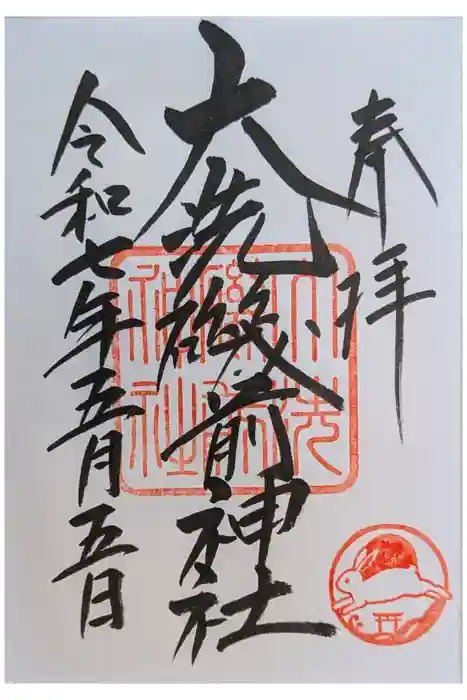 奉拝
大洗磯前神社
令和七年五月五日
大洗
磯前
神社